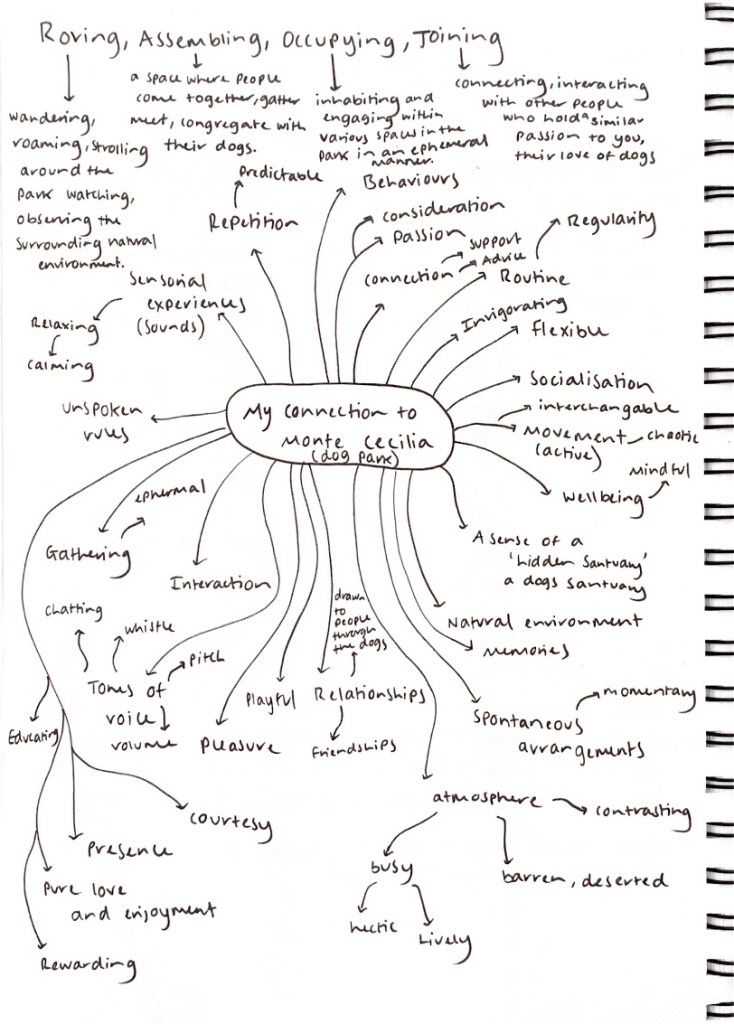 Roving, Assembling, Occupying, Joining
wandering,
roaming, strolling
around the
park watching,
observing the
surrounding natural
environment.
a space where people
come together, gather
meet, congregate with
their dogs.
inhabiting and
engaging within
various spaces in the
park in an ephemeral
manner.
connecting, interacting
with other people
who hold a similar
passion to you,
their love of dogs
predictable
Repetition
Behaviours
consideration
Passion
connection
support
Advice
Regularity
Routine
Invigorating
flexible
sensorial
experiences
(sounds)
Relaxing
calming
unspoken
rules
My connection to
Monte Cecilia
(dog park)
Socialisation
interchangable
Movement
(active)
chaotic
Mindful
Wellbeing
ephermal
Gathering
Interaction
A sense of a
'hidden santuary'
a dogs santuary
Natural environment
memories
chatting
whistle
pitch
Tones of
voice
volume
drawn
to
people
through
the dogs
Playful
Relationships
friendships
Pleasure
momentary
spontaneous
arrangements
Educating
courtesy
Presence
Pure love
and enjoyment
Rewarding
atmosphere
contrasting
busy
barren, deserted
hectic
Lively